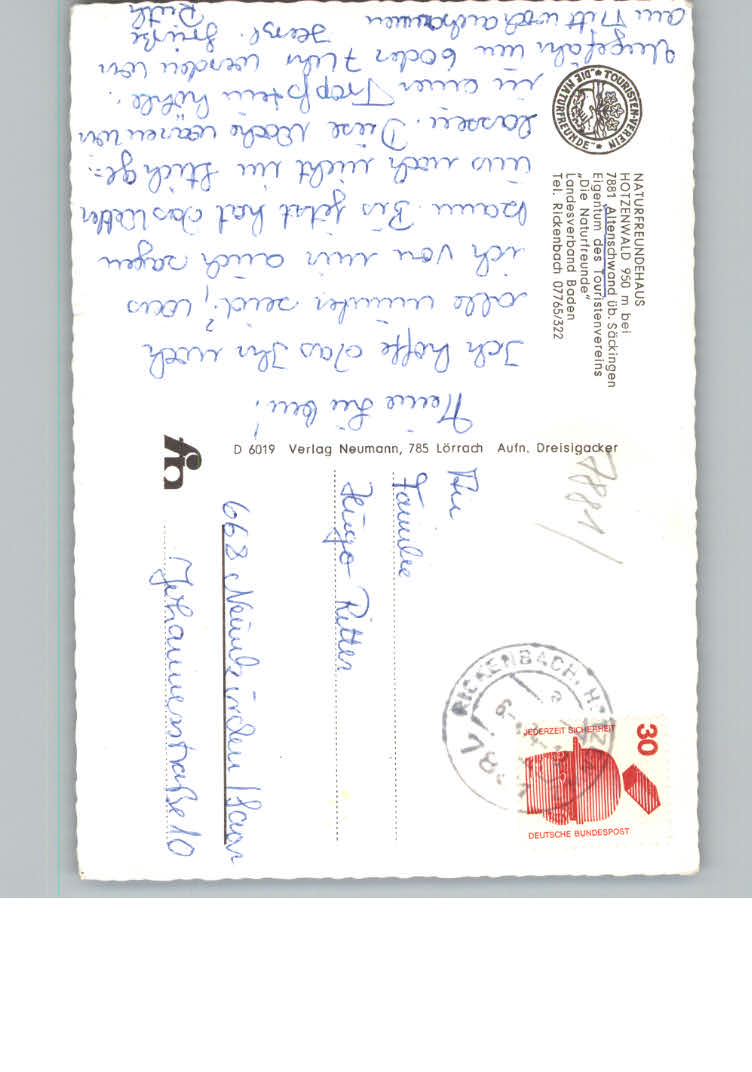 Meine Lieben!
Ich hoffe das Ihr noch
alle munter seid, was
ich von mir auch sagen
kann. Bis jetzt hat das Wetter
uns noch nicht im Stich ge=
lassen. Diese Woche waren wir
in einer Tropfsteinhöhle.
Ungefähr um 6 oder 7 Uhr werden wir
am Mittwoch ankommen
Herzl. Grüße
Ruth
DIE NATURFREUNDE
TOURISTEN-VEREIN
NATURFREUNDEHAUS
HOTZENWALD 950 m bei
7881 Altenschwand üb. Säckingen
Eigentum des Touristenvereins
„Die Naturfreunde"
Landesverband Baden
Tel. Rickenbach 07765/322
D 6019 Verlag Neumann, 785 Lörrach Aufn. Dreisigacker
fb
7881/
An
Familie
Hugo Ritter
668 Neunkirchen / Saar
Johannesstraße 10
RICKENBACH
7881
a
30
JEDERZEIT SICHERHEIT
DEUTSCHE BUNDESPOST